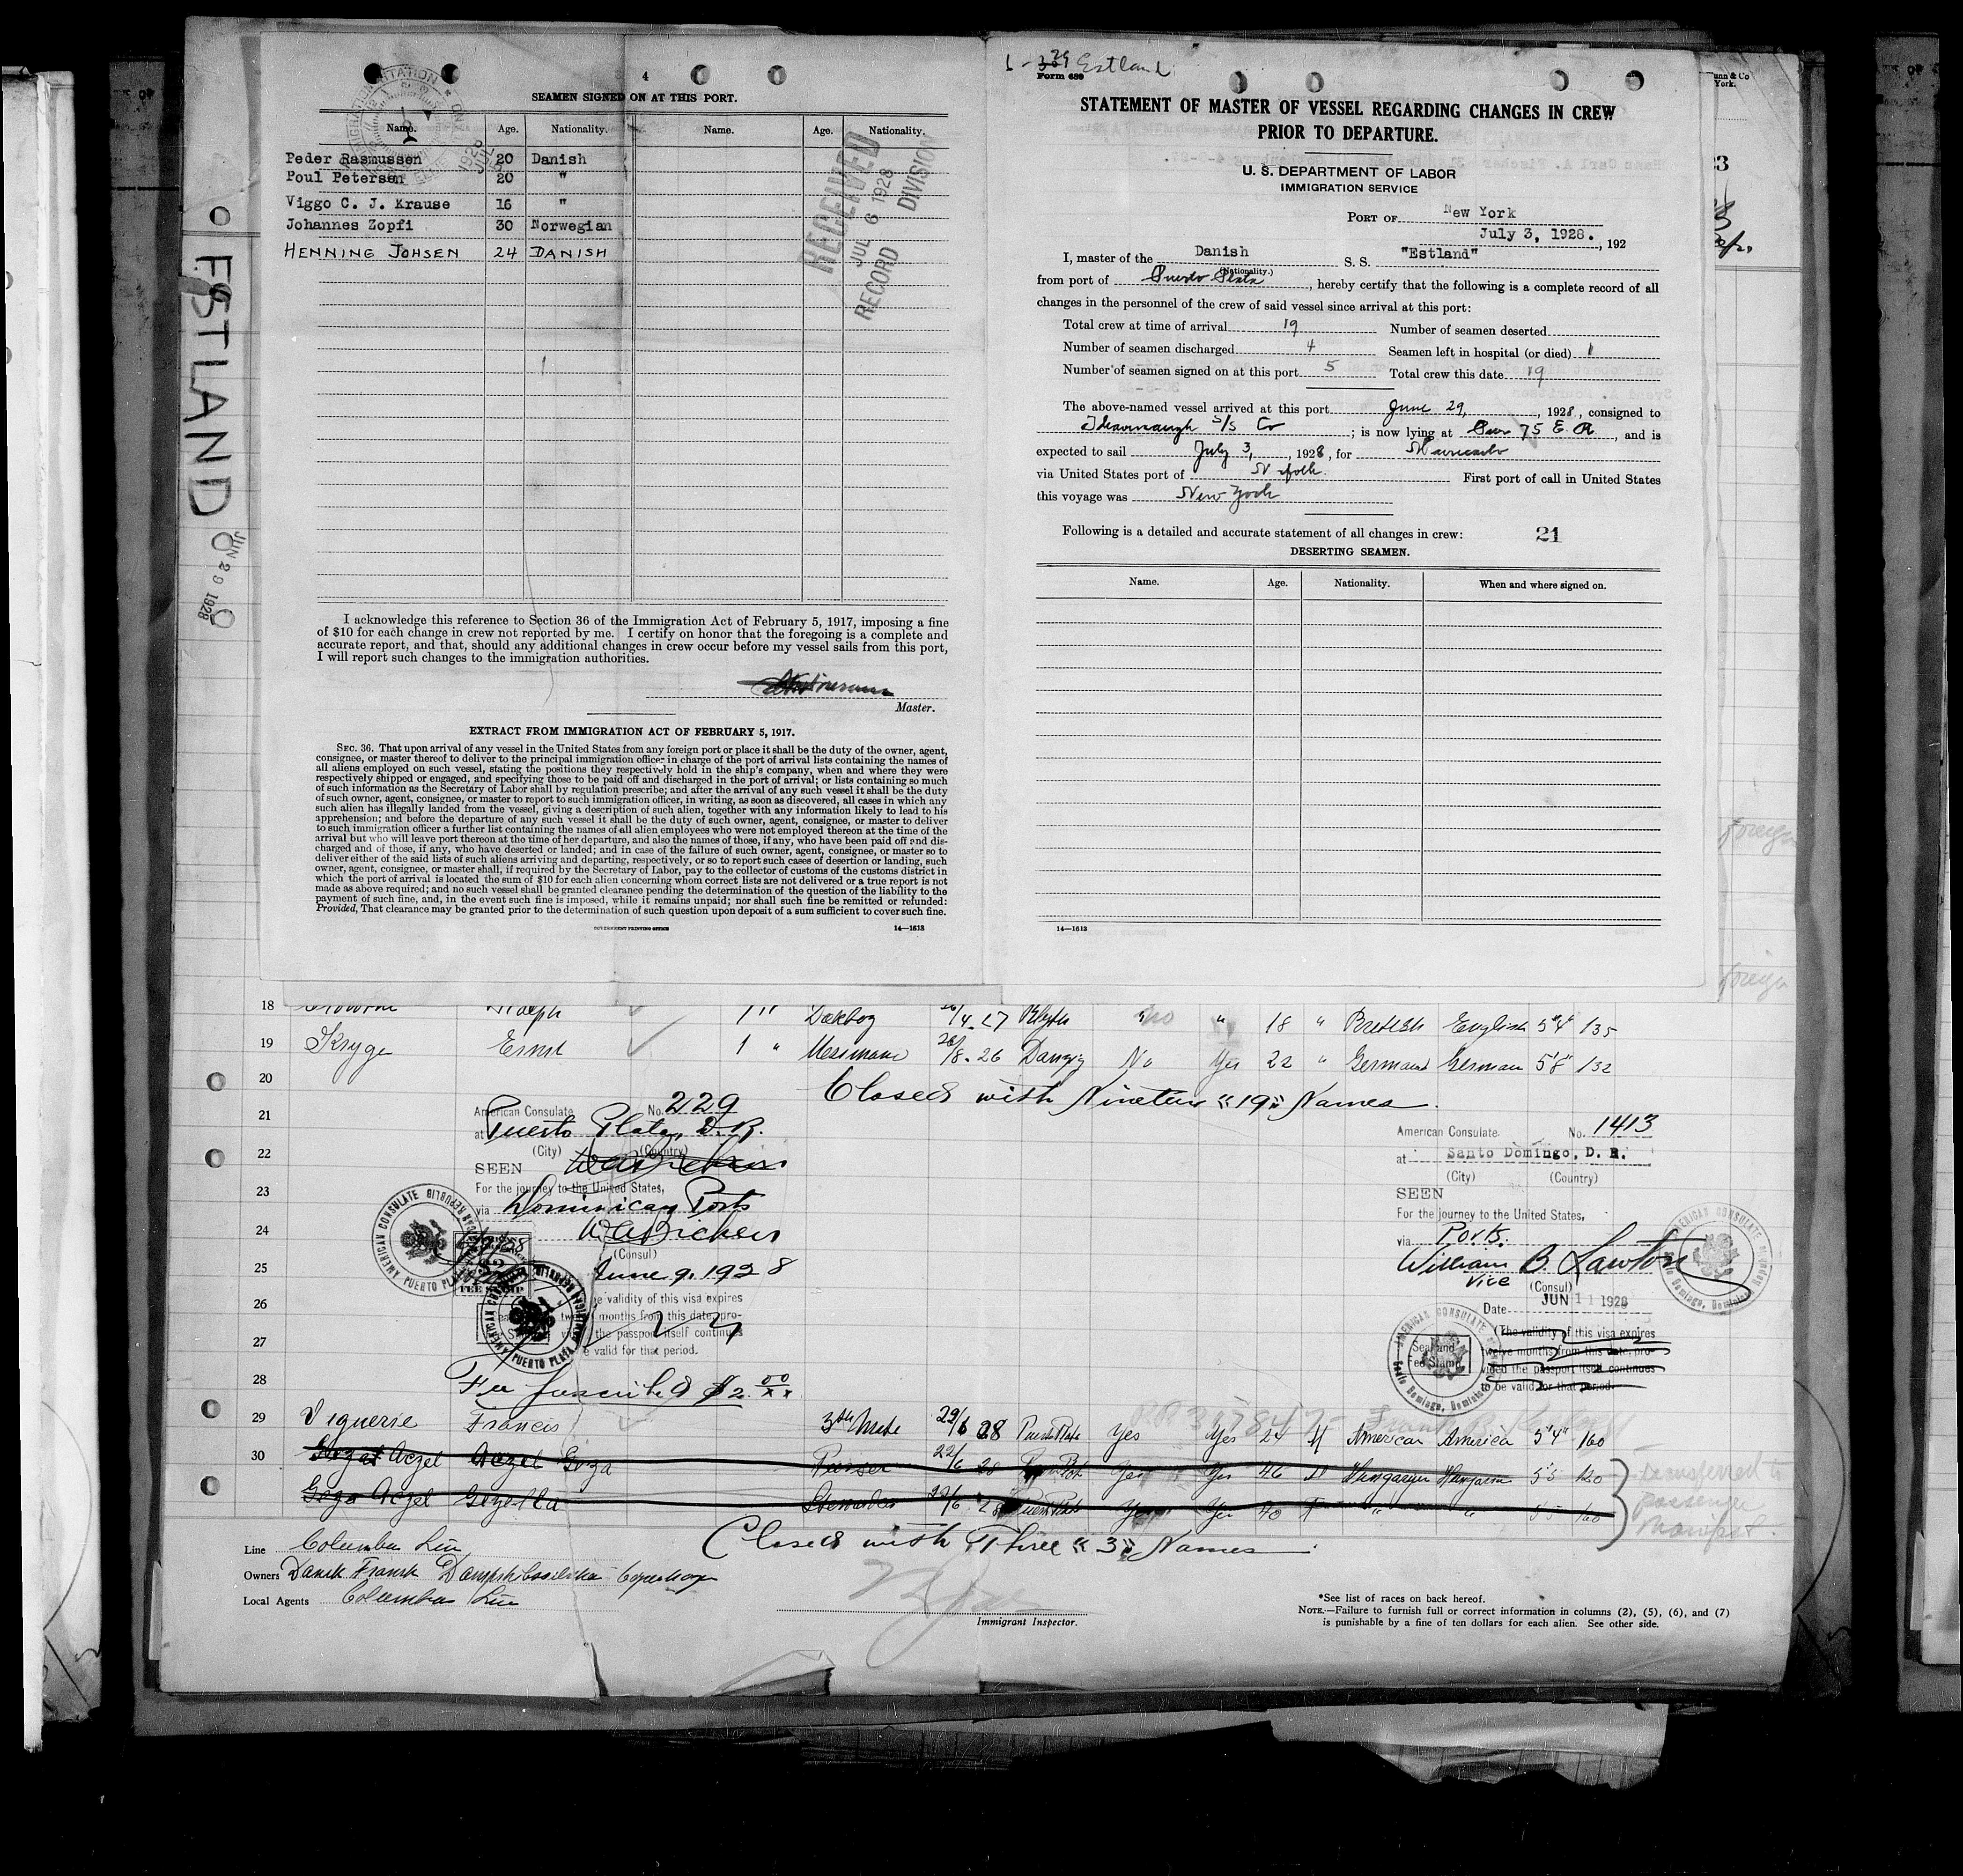 4
SEAMEN SIGNED ON AT THIS PORT.
Name. Age. Nationality. Name. Age. Nationality.
Peder Rasmussen 20 Danish
Poul Petersen 20 "
Viggo C. J. Krause 16 "
Johannes Zopfi 30 Norwegian
HENNING JOHSEN 24 DANISH
RECEIVED
JUL 6 1928
RECORD DIVISION
I acknowledge this reference to Section 36 of the Immigration Act of February 5, 1917, imposing a fine
of $10 for each change in crew not reported by me. I certify on honor that the foregoing is a complete and
accurate report, and that, should any additional changes in crew occur before my vessel sails from this port,
I will report such changes to the immigration authorities.
Master.
EXTRACT FROM IMMIGRATION ACT OF FEBRUARY 5, 1917.
SEC. 36. That upon arrival of any vessel in the United States from any foreign port or place it shall be the duty of the owner, agent,
consignee, or master thereof to deliver to the principal immigration officer in charge of the port of arrival lists containing the names of
all aliens employed on such vessel, stating the positions they respectively hold in the ship's company, when and where they were
respectively shipped or engaged, and specifying those to be paid off and discharged in the port of arrival; or lists containing so much
of such information as the Secretary of Labor shall by regulation prescribe; and after the arrival of any such vessel it shall be the duty
of such owner, agent, consignee, or master to report to such immigration officer, in writing, as soon as discovered, all cases in which any
such alien has illegally landed from the vessel, giving a description of such alien, together with any information likely to lead to his
apprehension; and before the departure of any such vessel it shall be the duty of such owner, agent, consignee, or master to deliver
to such immigration officer a further list containing the names of all alien employees who were not employed thereon at the time of the
arrival but who will leave port thereon at the time of her departure, and also the names of those, if any, who have been paid off and dis-
charged and of those, if any, who have deserted or landed; and in case of the failure of such owner, agent, consignee, or master so to
deliver either of the said lists of such aliens arriving and departing, respectively, or so to report such cases of desertion or landing, such
owner, agent, consignee, or master shall, if required by the Secretary of Labor, pay to the collector of customs of the customs district in
which the port of arrival is located the sum of $10 for each alien concerning whom correct lists are not delivered or a true report is not
made as above required; and no such vessel shall be granted clearance pending the determination of the question of the liability to the
payment of such fine, and, in the event such fine is imposed, while it remains unpaid; nor shall such fine be remitted or refunded:
Provided, That clearance may be granted prior to the determination of such question upon deposit of a sum sufficient to cover such fine.
GOVERNMENT PRINTING OFFICE 14—1613
ESTLAND
JUN 29 1928
Estland
Form 689
STATEMENT OF MASTER OF VESSEL REGARDING CHANGES IN CREW
PRIOR TO DEPARTURE.
U. S. DEPARTMENT OF LABOR
IMMIGRATION SERVICE
PORT OF New York
July 3, 1928. , 192
I, master of the Danish S. S. "Estland"
(Nationality.)
from port of Puerto Plata, hereby certify that the following is a complete record of all
changes in the personnel of the crew of said vessel since arrival at this port:
Total crew at time of arrival 19 Number of seamen deserted
Number of seamen discharged 4 Seamen left in hospital (or died) 1
Number of seamen signed on at this port 5 Total crew this date 19
The above-named vessel arrived at this port June 29, , 1928, consigned to
S/S Co ; is now lying at 75 E R, and is
expected to sail July 3, , 1928, for
via United States port of Norfolk. First port of call in United States
this voyage was New York
Following is a detailed and accurate statement of all changes in crew: 21
DESERTING SEAMEN.
Name. Age. Nationality. When and where signed on.
14—1613
18 Ralph 1" Blyth No " 18 " British English 5'4" 135
19 Kryge Ernst 1 " Messmann 8.26 Danzig No Yes 22 " German German 5'8" 132
20 Closed with Nineteen "19" Names.
21
22
23
24
25
26
27
28
American Consulate No. 229
at Puerto Plata, D.R.
(City) (Country)
SEEN
For the journey to the United States,
via Dominican Ports
W A Bickers
(Consul)
June 9. 1928
the validity of this visa expires
twelve months from this date, pro-
vided the passport itself continues
to be valid for that period.
AMERICAN CONSULATE PUERTO PLATA
Fee prescribed $2.00
American Consulate No. 1413
at Santo Domingo, D. R.
(City) (Country)
SEEN
For the journey to the United States,
via Ports.
William B. Lawton
Vice (Consul)
Date JUN 11 1928
(The validity of this visa expires
twelve months from this date, pro-
vided the passport itself continues
to be valid for that period.
Seal and
Fee Stamp
AMERICAN CONSULATE Santo Domingo, Dominican Republic
29 Viguerie Francis 3rd Mate 22/6 28 Puerto Plata Yes Yes 24 M American America 5'4" 160
30 Aczel Geza Purser 22/6 28 Yes Yes 46 Hungaryan 5'5 120
Aczel Gizella Stewardes 22/6 28 Puerto Plata Yes Yes 40 F " " 5'5 160
transferred to
passenger
manifest.
Closed with Three "3" Names.
Line Columbus Line
Owners Dansk Fransk Dampskibsselskab Copenhagen
Local Agents Columbus Line
Immigrant Inspector.
*See list of races on back hereof.
NOTE.—Failure to furnish full or correct information in columns (2), (5), (6), and (7)
is punishable by a fine of ten dollars for each alien. See other side.
foreign
foreign